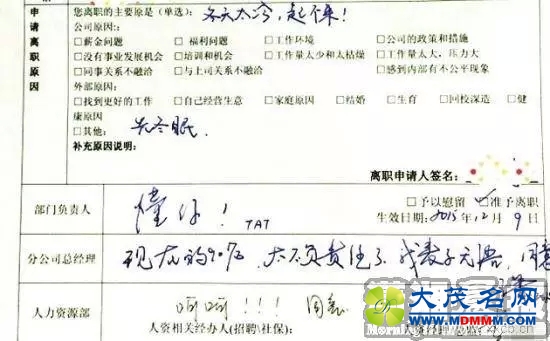 申请离职原因
您离职的主要原是(单选): 冬天太冷,起不来!
公司原因:
□薪金问题 □福利问题 □工作环境 □公司的政策和措施
□没有事业发展机会 □培训和机会 □工作量太少和太枯燥 □工作量太大,压力大
□同事关系不融洽 □与上司关系不融洽 □感到内部有不公平现象
外部原因:
□找到更好的工作 □自己经营生意 □家庭原因 □结婚 □生育 □回校深造 □健
康原因
□其他: 先冬眠.
补充原因说明:
离职申请人签名:
部门负责人
懂你! TAT
□予以慰留 ✓准予离职
生效日期: 2015 12月 9日
分公司总经理
现在的90后,太不负责任了,我表示无语,同意
人力资源部
呵呵!!! 同意
人资相关经办人(招聘\社保):
人资经理/总监:
大茂名网
WWW.MDMMM.COM
Morning